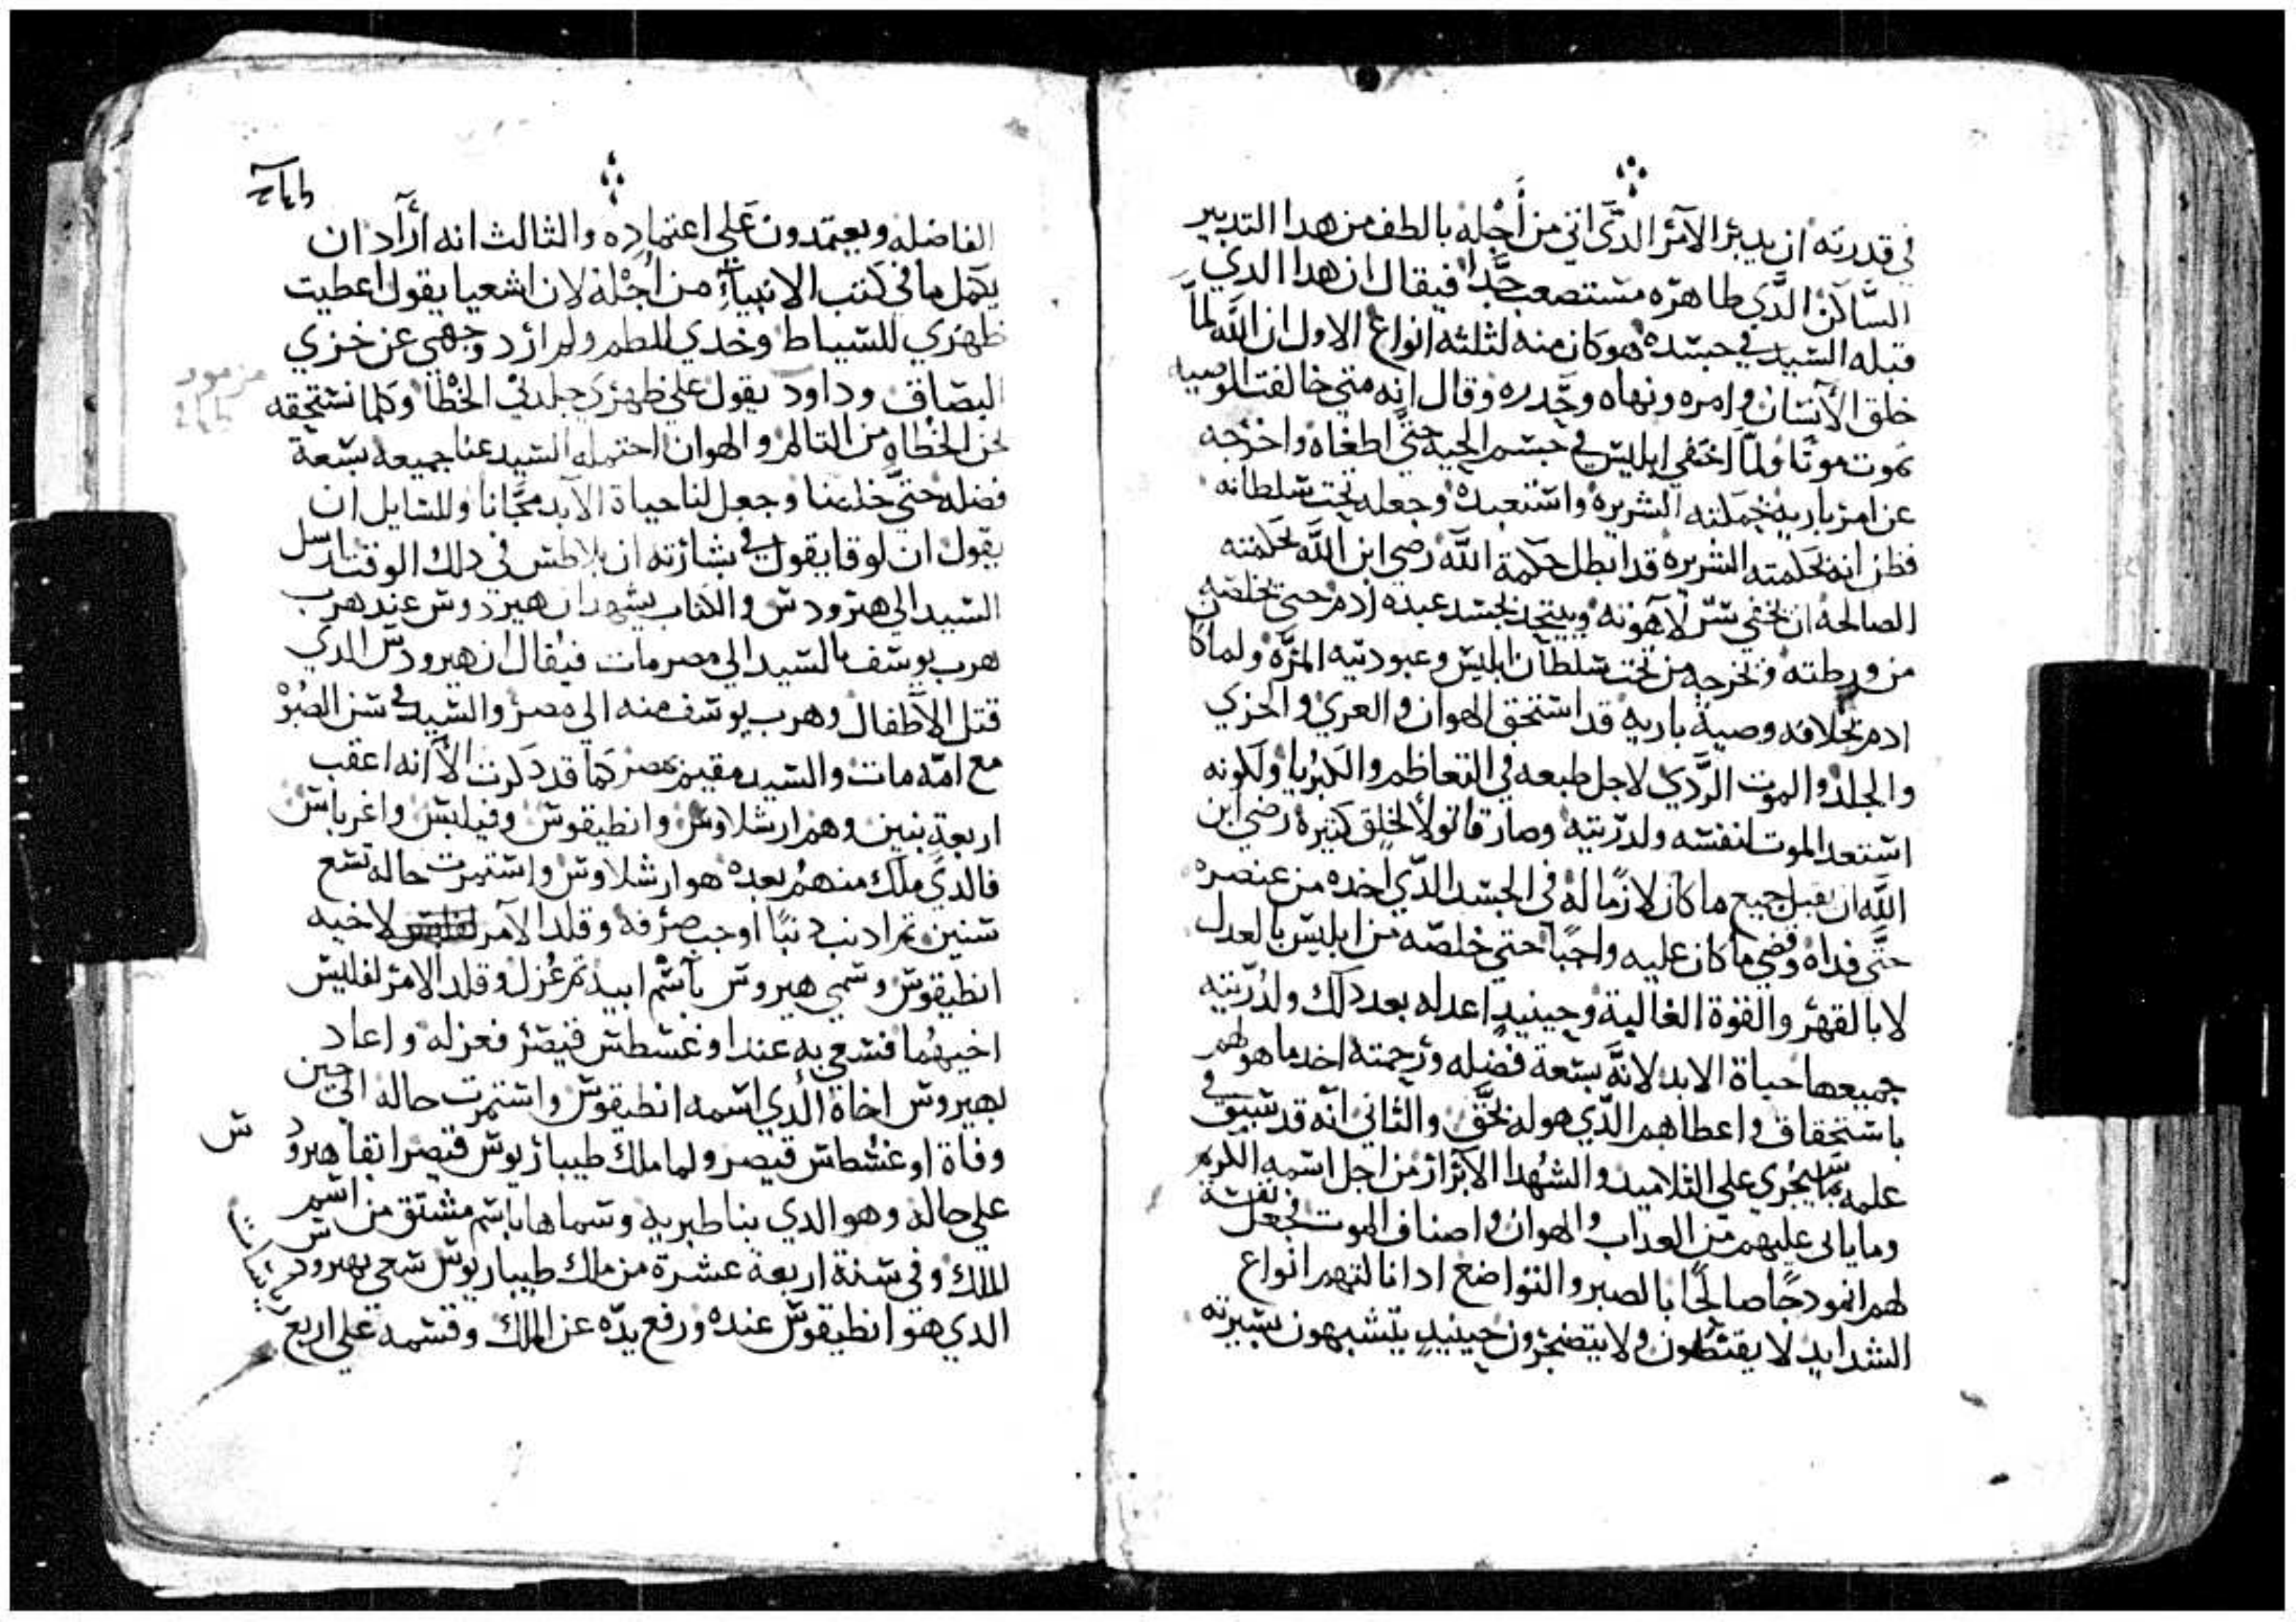 في قدرته ان يدبر الآمر الدي اتي من أجله بالطف من هدا التدبير
الساكن الدي ظاهره مستصعب جدا فيقال ان هدا الدي
قبله السيد في جسده هو كان منه لثلثه انواع الاول ان الله لما
خلق الآنسان وامره ونهاه وحدره وقال انه متي خالفت الوصيه
تموت موتا ولما اختفي ابليس في جسم الحيه حتي اطغاه واخرجه
عن امر باريه بحملته الشريره واستعبده وجعله تحت سلطانه
فظن انه بحكمته الشريره قد ابطل حكمة الله رضي ابن الله بحكمته
الصالحه ان يخفي سر لاهوته ويتحد بجسد عبده ادم حتي يخلصه
من ورطته ويخرجه من تحت سلطان ابليس وعبوديته المرة ولما كان
ادم بخلافه وصية باريه قد استحق الهوان والعري والخزي
والجلد والموت الردي لاجل طبعه في التعاظم والكبريا ولكونه
استعد الموت لنفسه ولدريته وصار قاتولا لخلق كثيره رضي ابن
الله ان يقبل جميع ما كان لازما له في الجسد الدي اخده من عنصره
حتي فداه وقضي ما كان عليه واجبا حتي خلصه من ابليس بالعدل
لا بالقهر والقوة الغالبة وحينيد اعد له بعد دلك ولدريته
جميعها حياة الابد لانه بسعة فضله ورحمته اخد ما هو لهم
باستحقاق واعطاهم الدي هو له بحق والثاني انه قد سبق في
علمه بما سيجري علي التلاميد والشهدا الآبرار من اجل اسمه الكريم
وما ياتي عليهم من العداب والهوان واصناف الموت فجعل نفسه
لهم انمودجا صالحا بالصبر والتواضع ادا نالتهم انواع
الشدايد لا يقنطون ولا يتضجرون حينيد يتشبهون بسيرته
الفاضله ويعتمدون علي اعتماده والثالث انه أراد ان
يكمل ما في كتب الانبياء من اجله لان اشعيا يقول اعطيت
ظهري للسياط وخدي للطم ولم ارد وجهي عن خزي
مزمور
البصاق وداود يقول علي ظهري جلدني الخطاه وكلما نستحقه
نحن الخطاه من التالم والهوان احتمله السيد عنا جميعه بسعة
فضله حتي خلصنا وجعل لنا حياة الآبد مجانا وللسايل ان
يقول ان لوقا يقول في بشارته ان بلاطس في دلك الوقت ارسل
السيد الي هيرودس والكتاب يشهد ان هيرودوس عند هرب
هرب يوسف بالسيد الي مصر مات فيقال ان هيرودس الدي
قتل الآطفال وهرب يوسف منه الي مصر والسيد في سن الصبو
مع امه مات والسيد مقيم بمصر كما قد دكرت الآ انه اعقب
اربعة بنين وهم ارشلاوس وانطيقوس وفيلبس واغرباس
فالدي ملك منهم بعده هو ارشلاوس واستمرت حاله تسع
سنين ثم ادنب دنبا اوجب صرفه وقلد الآمر لاخيه
انطيقوس وسمي هيروس بآسم ابيه ثم عزل وقلد الامر لفليس
اخيهما فسعي به عند اوغسطس قيصر فعزله واعاد
لهيروس اخاه الدي اسمه انطيقوس واستمرت حاله الي حين
وفاة اوغسطس قيصر ولما ملك طيباريوس قيصر ابقا هيرود س
علي حاله وهو الدي بنا طبريه وسماها باسم مشتق من اسم
الملك وفي سنة اربعة عشرة من ملك طيباريوس سعي بهيرودس
الدي هو انطيقوس عنده ورفع يده عن الملك وقسمه علي اربع